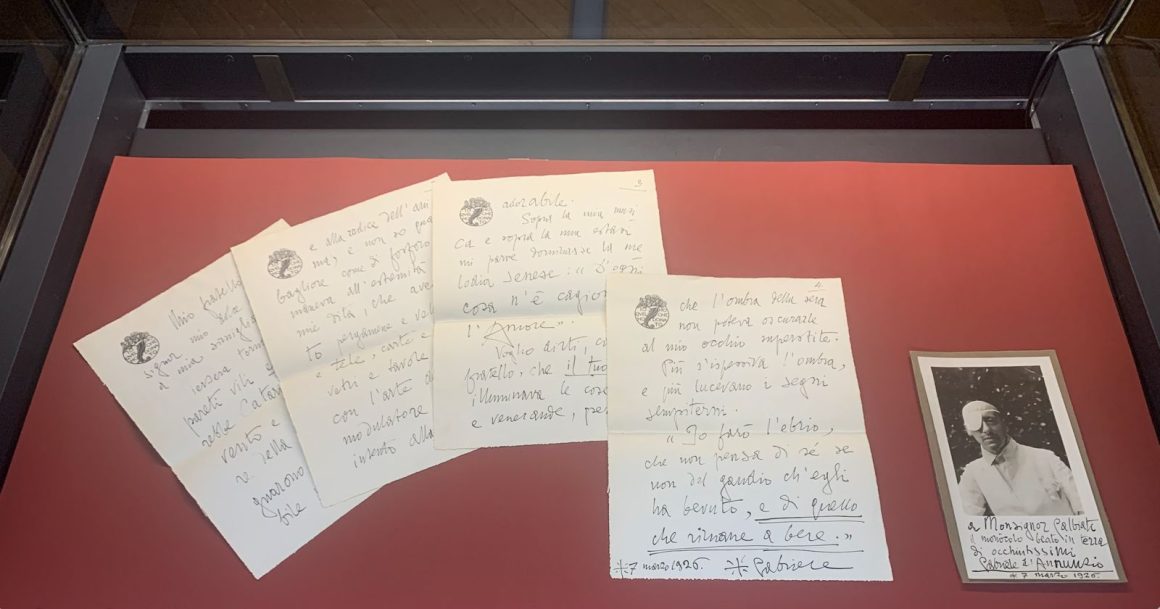 Mio fratello
signor mio
a mia somiglia
iersera torna
pareti vili
vento e
v. della
e alla radice dell'ani
ma; e non so qua
bagliore come di fosforo
maneva all'estremità
mie dita, che ave
to pergamene e ve
e tele, carte e
vetri e tavole
con l'arte d
modulatore
intento alla
3
adorabile.
Sopra la mia musi
ca e sopra la mia estasi
mi parve dominasse la me
lodia senese: "D'ogni
cosa n'è cagion
l'Amore".
Voglio dirti,
fratello, che il tuo
illuminava le cose
e venerande,
4
che l'ombra della sera
non poteva oscurarle
al mio occhio superstite.
Più s'ispessiva l'ombra,
e più lucevano i segni
sempiterni.
"Io farò l'ebrio,
che non pensa di sé se
non del gaudio ch'egli
ha bevuto, e di quello
che rimane a bere."
7 marzo 1926. Gabriele
a Monsignor Galbiati
il monocolo beato in terra
di occhiutissimi
Gabriele d'Annunzio
7 marzo 1926.